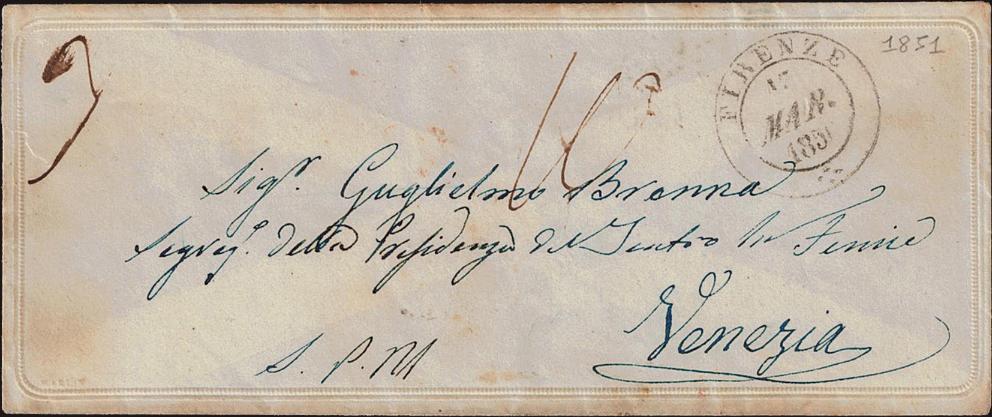 1851
FIRENZE
17
MAR.
1851
Sigr. Guglielmo Brenna
Segreto. della Presidenza del Teatro La Fenice
Venezia
S. P. M